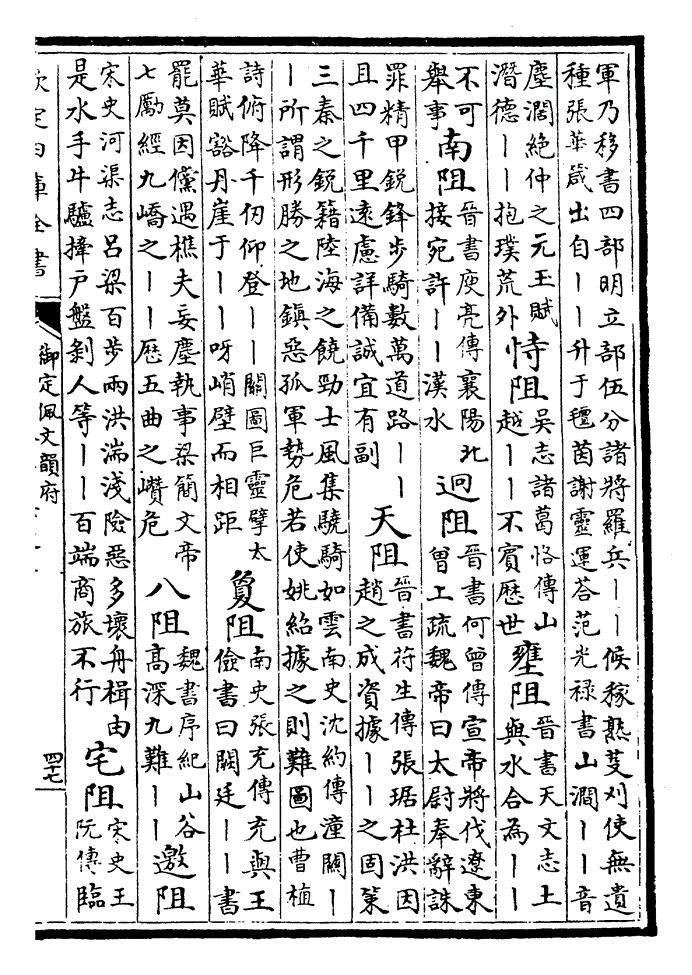 軍乃移書四部明立部伍分諸將羅兵丨丨候稼熟芟刈使無遺
種張華箴出自丨丨升于㲲茵謝靈運荅范光祿書山澗丨丨音
塵濶絶仲之元玉賦
潛德丨丨抱璞荒外
恃阻
吳志諸葛恪傳山
越丨丨不賓歷世
壅阻
晉書天文志土
與水合為丨丨
不可
舉事
南阻
晉書庾亮傳襄陽北
接宛許丨丨漢水
迥阻
晉書何曾傳宣帝將伐遼東
曾上疏魏帝曰太尉奉辭誅
罪精甲銳鋒步騎數萬道路丨丨
且四千里遠慮詳備誠宜有副
天阻
晉書苻生傳張琚杜洪因
趙之成資據丨丨之固策
三秦之銳籍陸海之饒勁士風集驍騎如雲南史沈約傳潼關丨
丨所謂形勝之地鎮惡孤軍勢危若使姚紹據之則難圖也曹植
詩俯降千仞仰登丨丨關圖巨靈擘太
華賦豁丹崖于丨丨呀峭壁而相距
夐阻
南史張充傳充與王
儉書曰闕廷丨丨書
罷莫因儻遇樵夫妄塵執事梁簡文帝
七勵經九嶠之丨丨歷五曲之巑危
八阻
魏書序紀山谷
高深九難丨丨
邀阻
宋史河渠志呂梁百步兩洪湍淺險惡多壞舟楫由
是水手牛驢撁戶盤剝人等丨丨百端商旅不行
宅阻
宋史王
阮傳臨
欽定四庫全書
御定佩文韻府
四十七